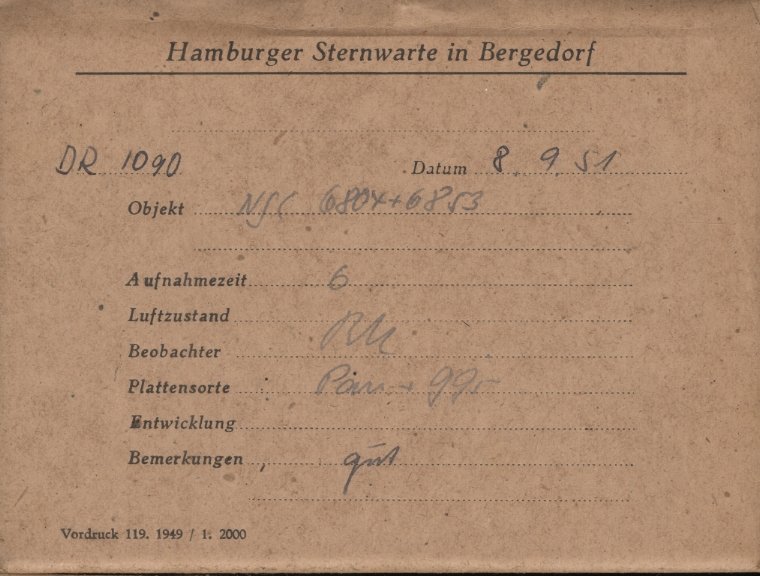 Hamburger Sternwarte in Bergedorf
DR 1090 Datum 8. 9. 51
Objekt NGC 6804+6853
Aufnahmezeit 6
Luftzustand
Beobachter
Plattensorte Pan + 99
Entwicklung
Bemerkungen gut
Vordruck 119. 1949 / 1. 2000